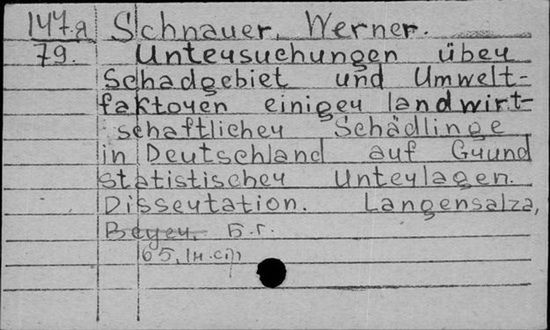 147a Schnauer, Werner.
79. Untersuchungen über
Schadgebiet und Umwelt-
faktoren einiger landwirt-
schaftlicher Schädlinge
in Deutschland auf Grund
statistischer Unterlagen.
Dissertation. Langensalza,
Beyer, Б.г.
65, IH. с.